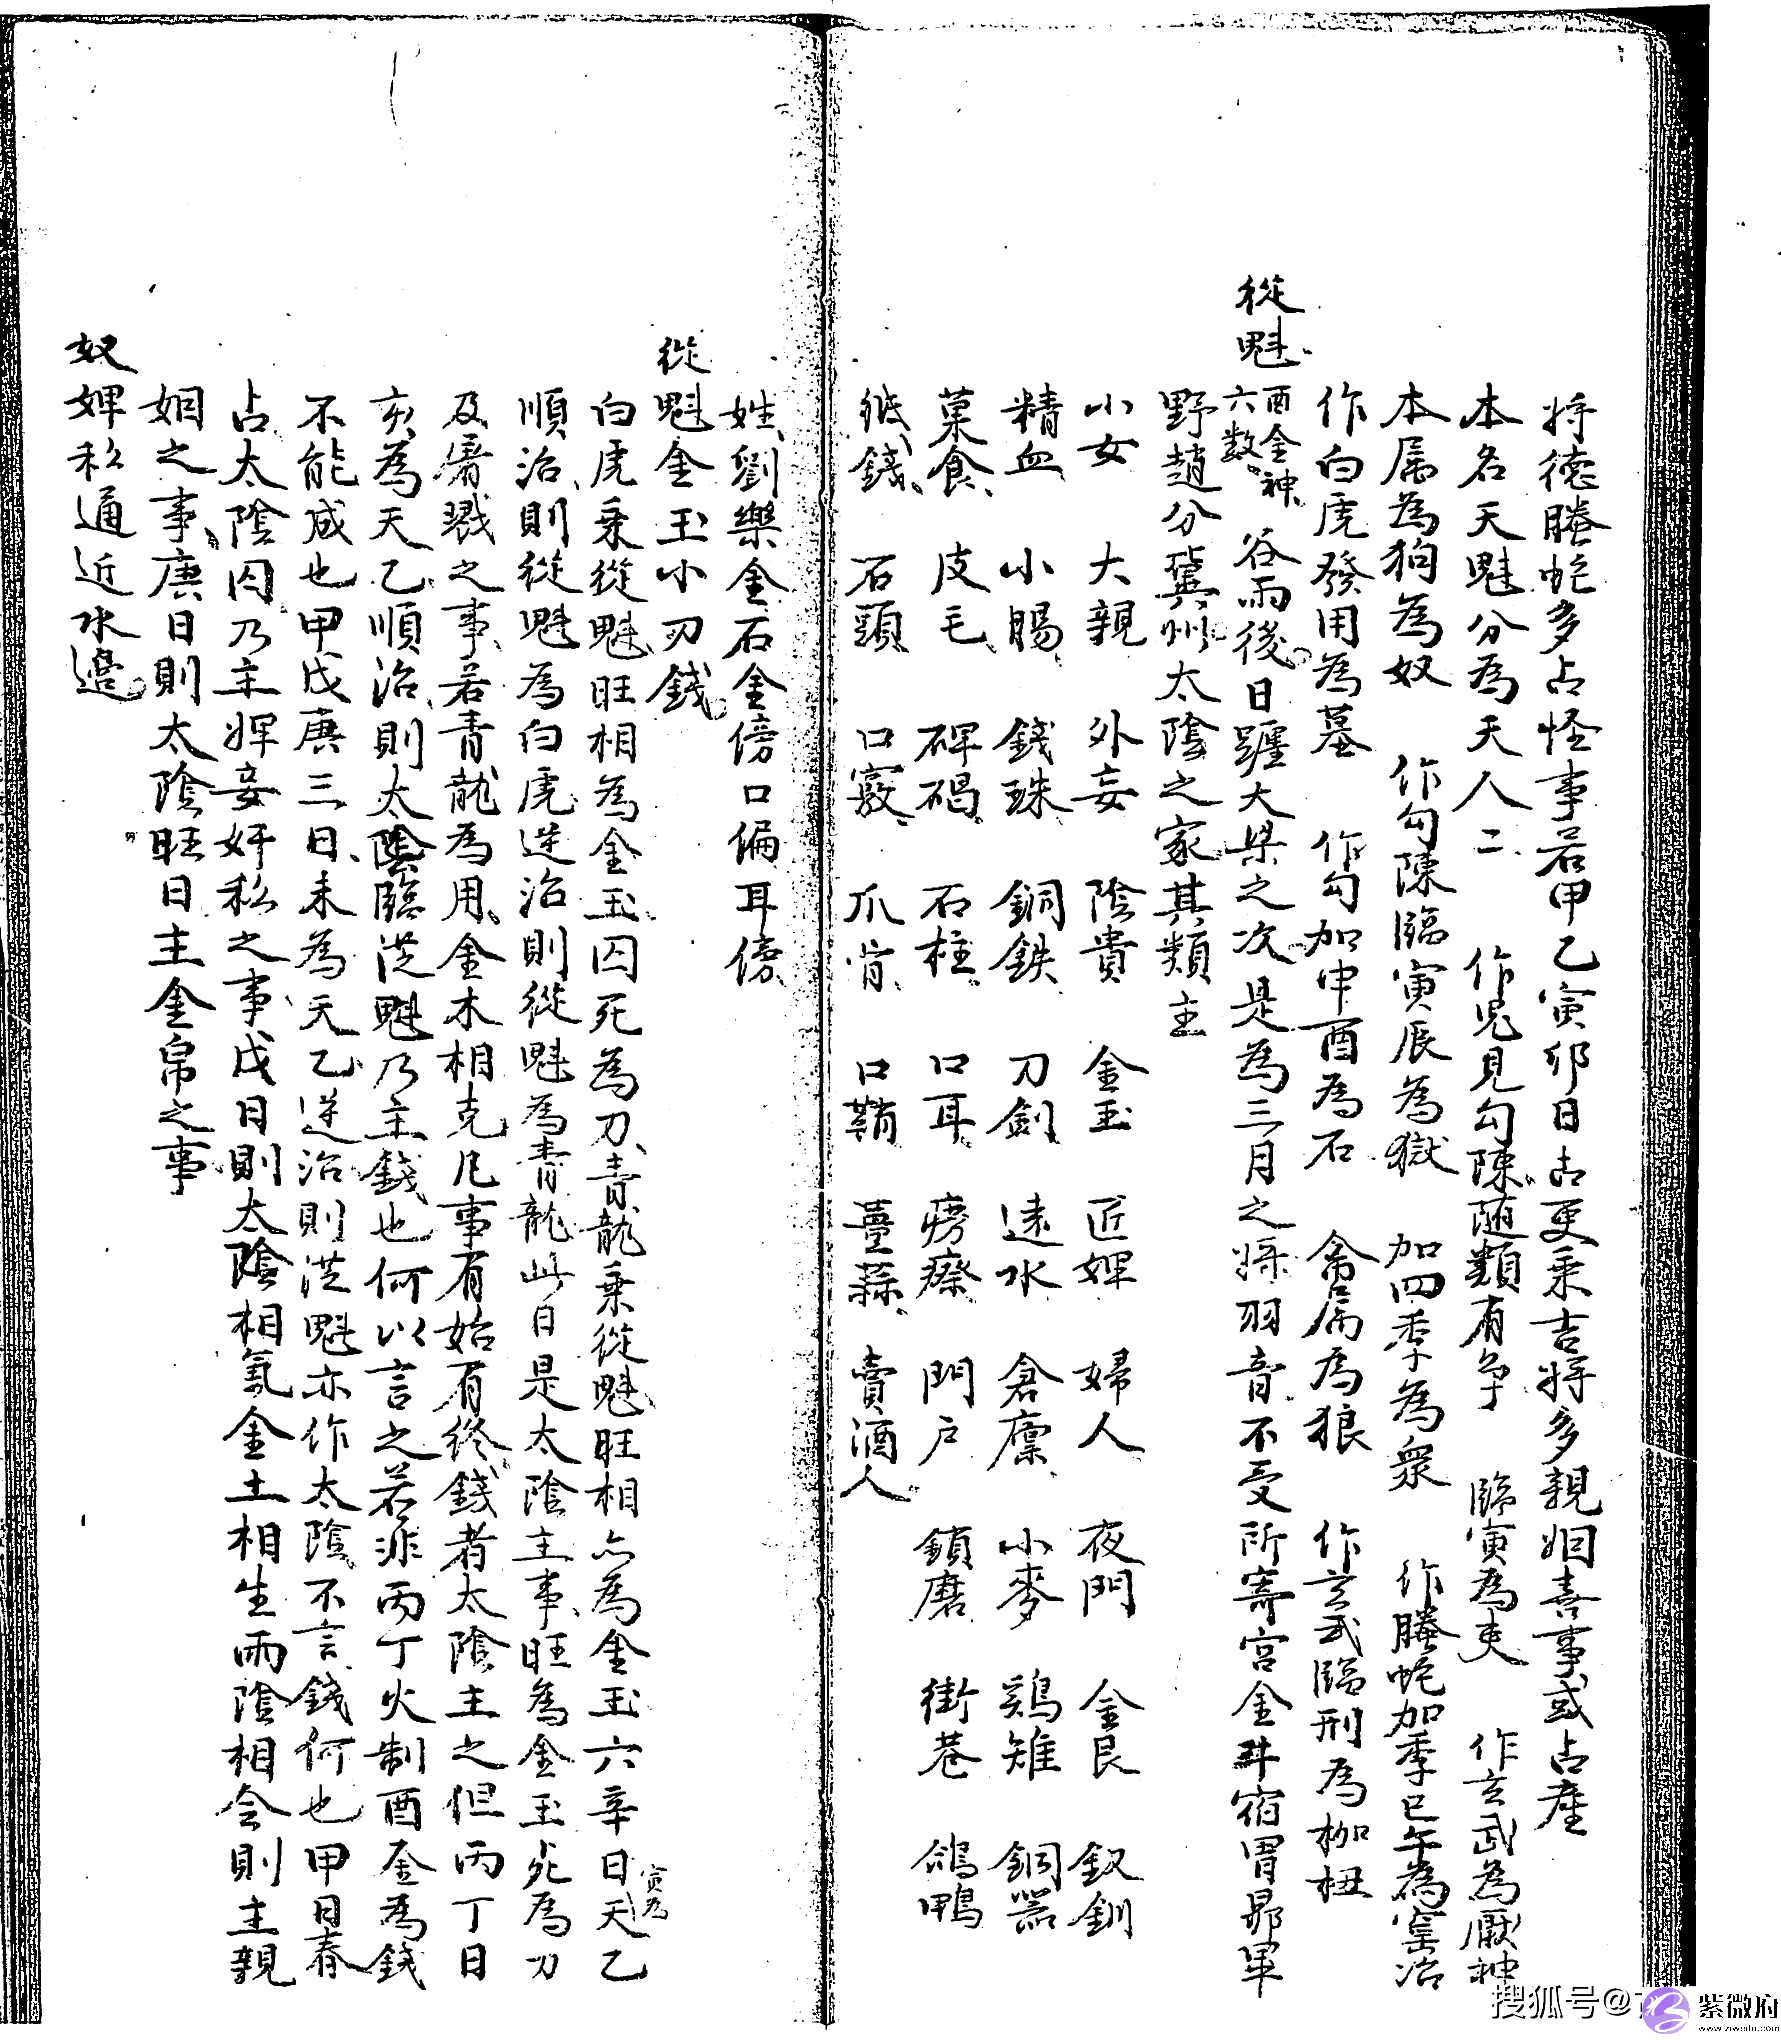 将德螣虵多占怪事若甲乙寅卯日占更乘吉将多親姻喜事或占產
本名天魁分為天人二 作鬼見勾陳随類有爭 臨寅為吏 作玄武為厭神
本属為狗為奴 作勾陳臨寅辰為獄 加四季為衆 作螣虵加季巳午為窯冶
作白虎發用為墓 作勾加申酉為石 禽属為狼 作玄武臨刑為枷杻
從魁 酉金神六数 谷雨後日躔大梁之次是為三月之将羽音不受所寄宫金斗宿胃昴畢
野趙分冀州太陰之家其類主
小女 大親 外妾 陰貴 金玉 匠婢 婦人 夜門 金艮 釵釧
精血 小賜 錢珠 銅鉄 刀劍 遠水 倉廩 小麥 鷄雉 銅器
菓食 皮毛 碑碣 石柱 口耳 癆瘵 門户 鎖磨 街巷 鴿鴨
紙錢 石頭 口竅 爪肯 口鞘 薑蒜 賣酒人
姓劉樂金石金傍口偏耳傍
從魁金玉小刃錢
白虎乘從魁旺相為金玉囚死為刀青龍乘從魁旺相亦為金玉六辛日天乙寅為
順治則從魁為白虎逆治則從魁為青龍此日是太陰主事旺為金玉死為刀
及屠戮之事若青龍為用金木相克凡事有始有終錢者太陰主之但丙丁日
亥為天乙順治則太陰臨從魁乃主錢也何以言之若非丙丁火制酉金為錢
不能成也甲戊庚三日未為天乙逆治則從魁亦作太陰不言錢何也甲日春
占太陰囚乃主婢妾奸私之事戊日則太陰相氣金土相生兩陰相会則主親
姻之事庚日則太陰旺日主金帛之事
奴婢私通近水邊
搜狐号@
紫微府
www.ziweifu.com